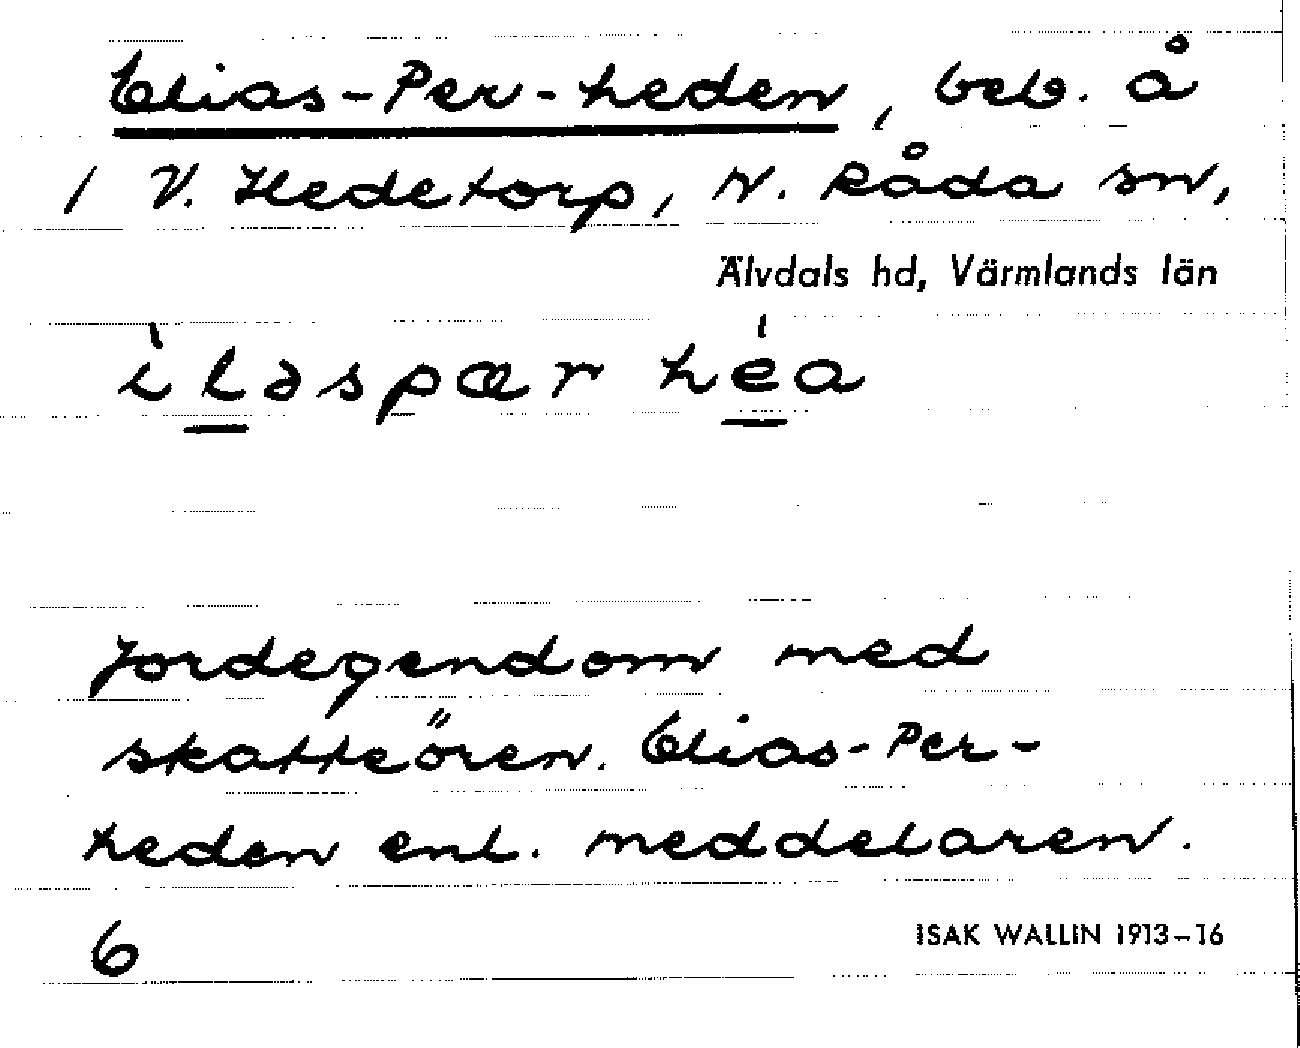 Elias-Per-heden, beb. å
/ V. Hedetorp, N. Råda sn,
Älvdals hd, Värmlands län
ìləspær héa
Jordegendom med
skatteören. Elias-Per-
heden enl. meddelaren.
6
ISAK WALLIN 1913–16